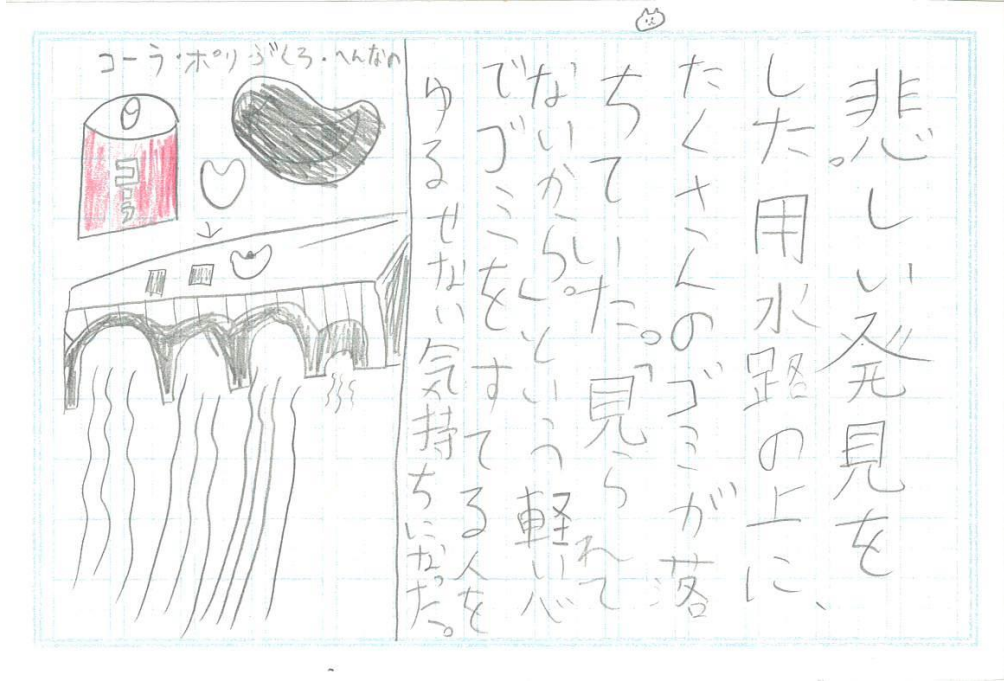 悲しい発見を
した用水路の上に、
たくさんのゴミが落
ちていた。「見られて
ないからい。」という軽い心
でゴミをすてる人を
ゆるせない気持ちになった。
コーラ・ポリぶくろ・へんなの
コーラ